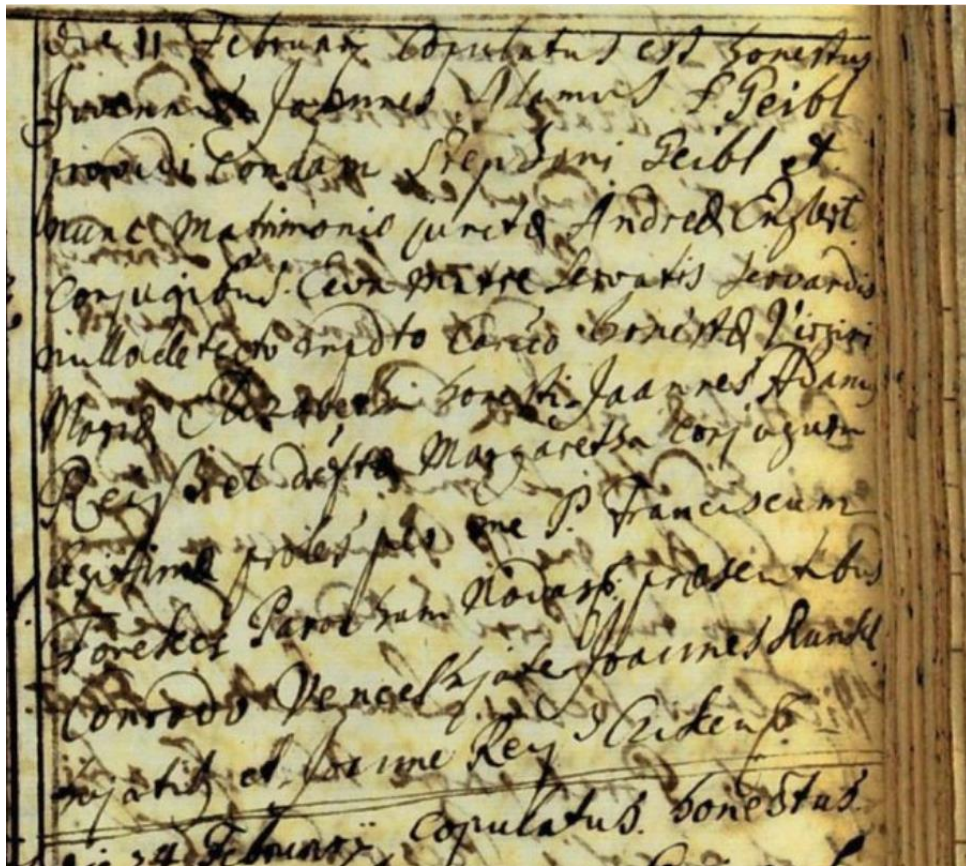 die 11 Februarÿ Copulatus est honestus
Juvenis Joannes Adamus Geibl
providi condam Stephani Geibl et
nunc Matrimonio junctæ Andreæ Englert
Conjugibus. Cum Matre servatis servandis
nullo detecto impdto Canco honestæ Virgini
Mariæ Elizabetha honesti Joannes Adami
Rey et dfstæ Margaretha Conjugum
legitima proles per me P. Franciscum
Parochum presentibus
Conrado Vencel hjate Joannes Kunckl
hjatis et Joanne Rey
die 24 Februarÿ copulatus. honestus.